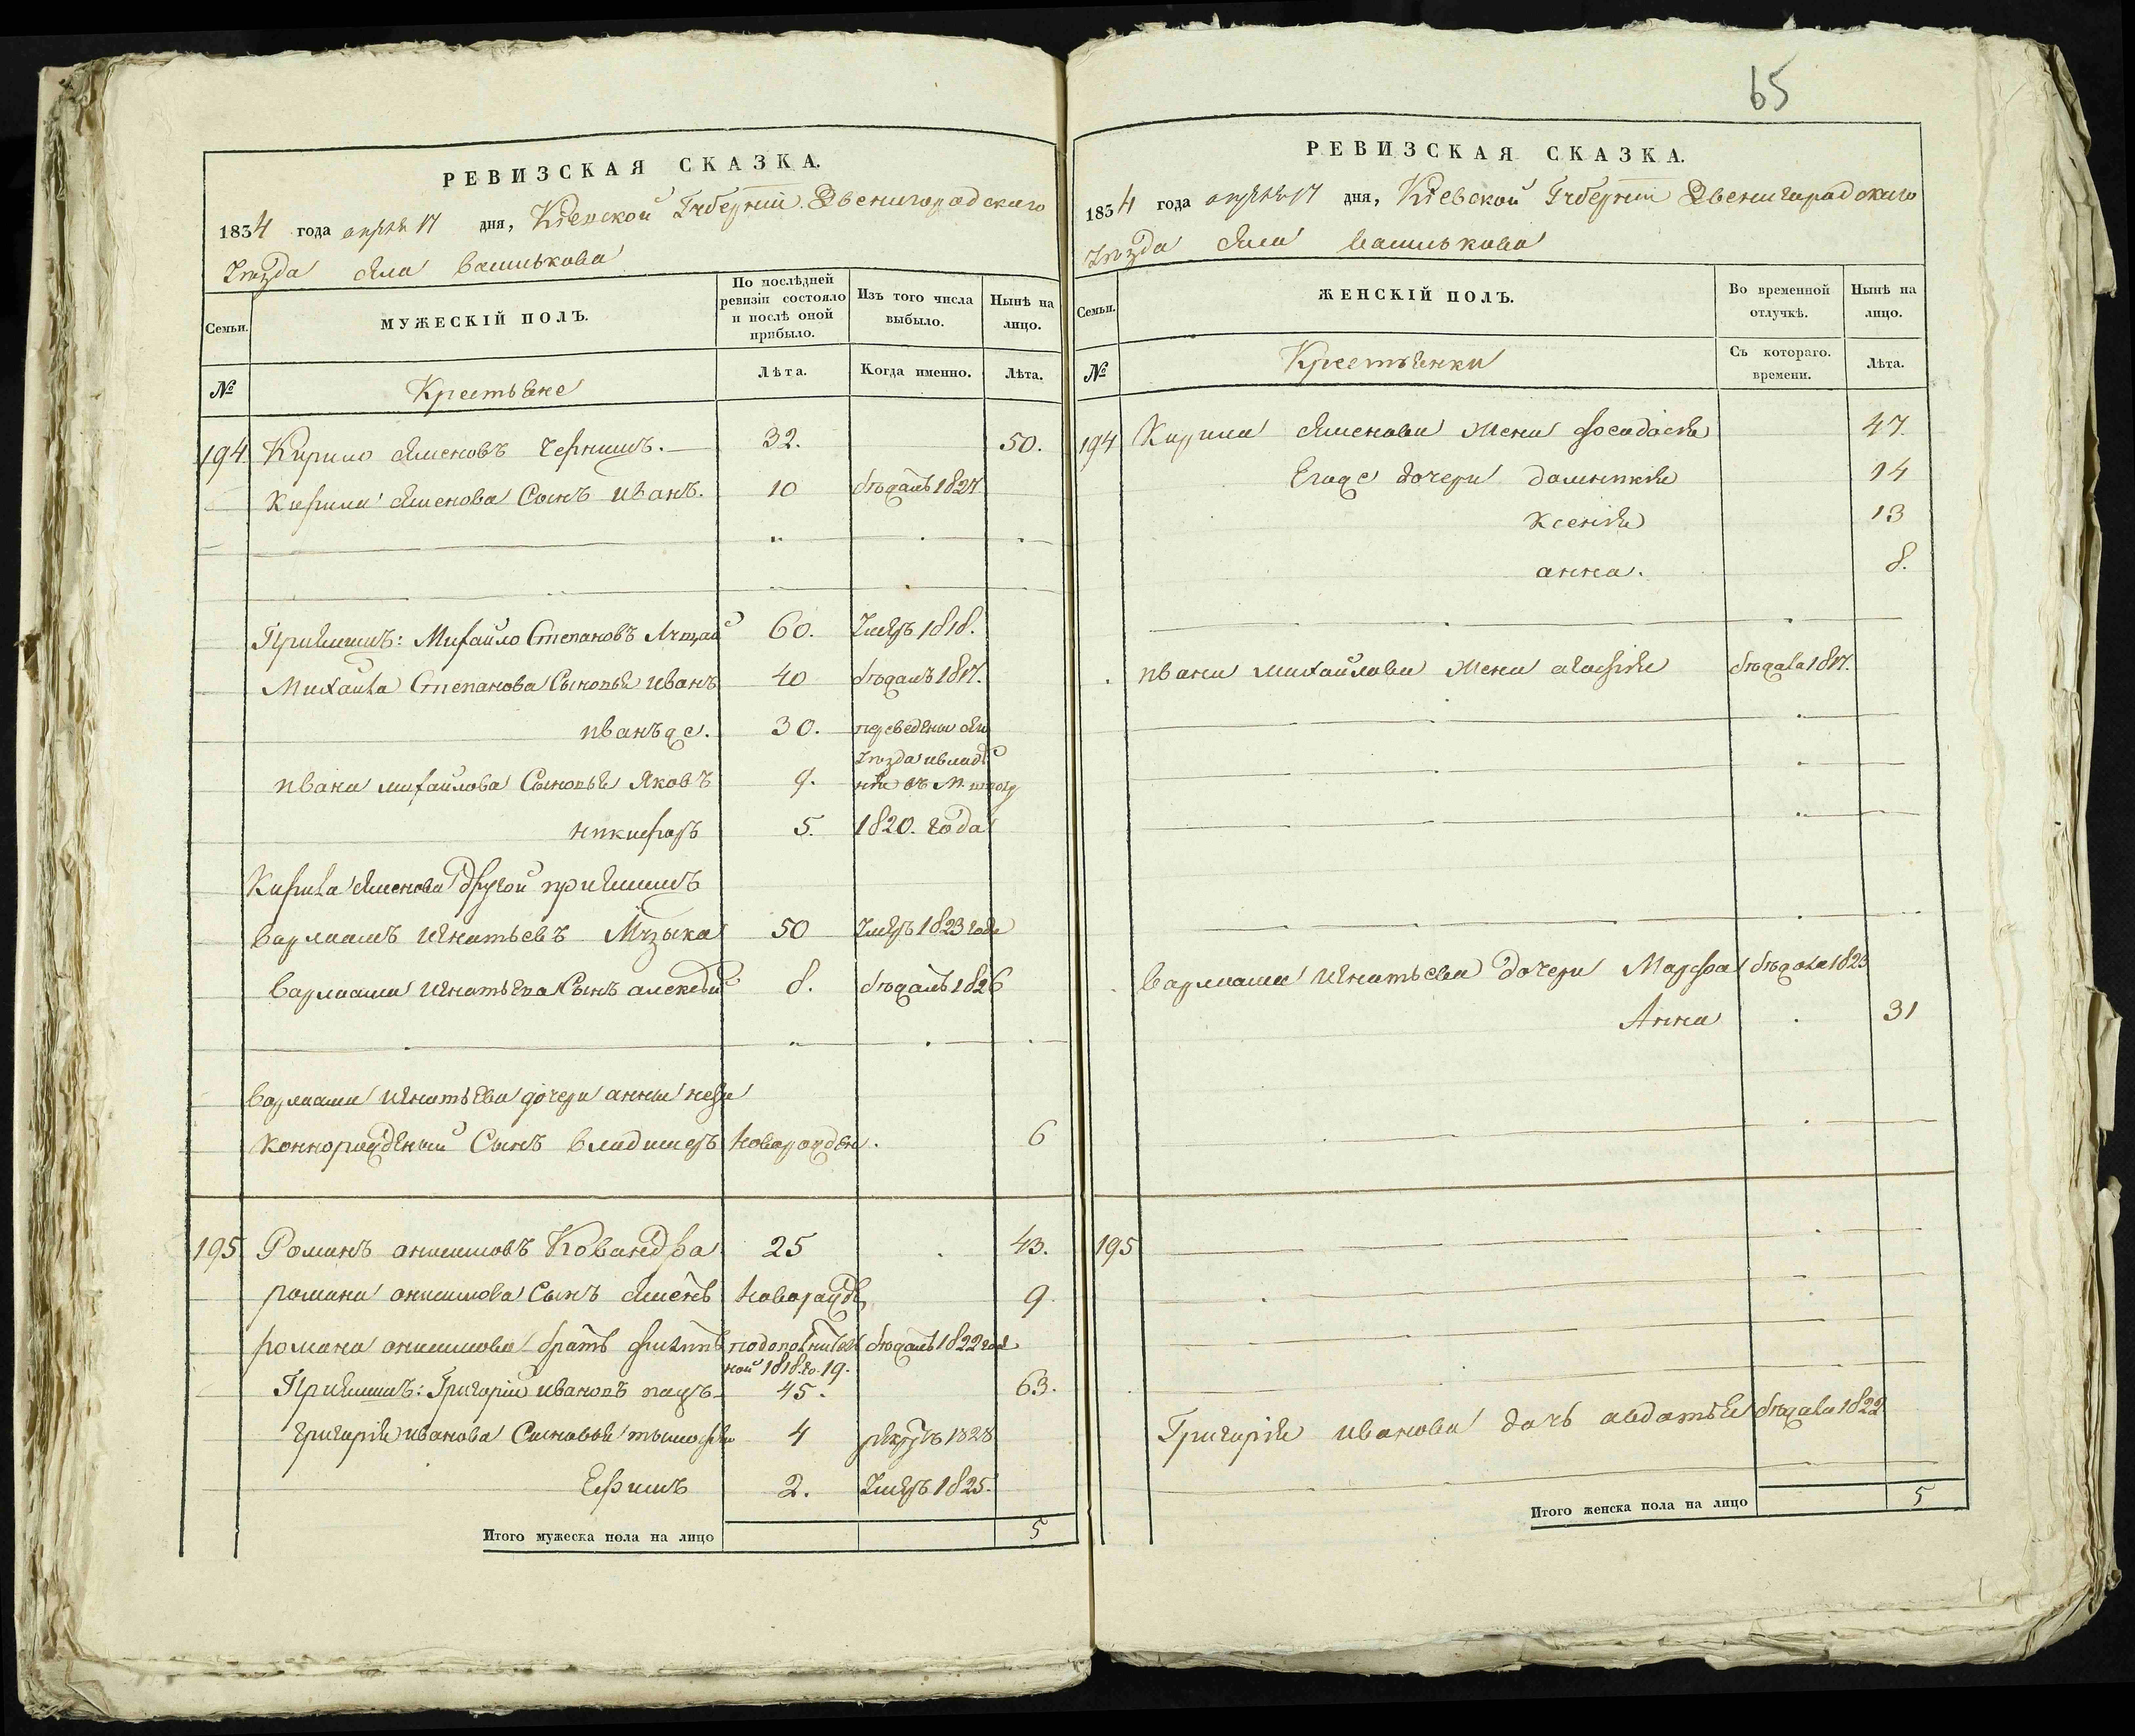 65
РЕВИЗСКАЯ СКАЗКА.
1834 года апреля 17 дня, Кіевской Губерніи Звенигородскаго
Уѣзда села Васильково
Семьи.
МУЖЕСКІЙ ПОЛЪ.
По послѣдней ревизіи состояло и послѣ оной прибыло.
Изъ того числа выбыло.
Нынѣ на лицо.
№
Крестьяне
Лѣта.
Когда именно.
Лѣта.
194 Кирило Семеновъ 32. 50.
Кирила Семенова Сынъ иванъ. 10 1827
Приймишъ: Михайло Степановъ 60. Умеръ 1818.
Михайла Степанова Сыновья иванъ 40 1817.
иванъ же. 30. переведены
Уѣзда
ивана михайлова Сыновья Яковъ 9.
никифоръ 5. 1820. года
Кирила Семенова другой приймишъ
варлаамъ игнатьевъ Музыка 50 Умеръ 1823 года
варлаама игнатьева Сынъ алексѣй 8. 1826
варлаама игнатьева дочери анны неза
коннорожденный Сынъ владимеръ новорожден. 6
195 Романъ анисимовъ Ковандра 25 43.
романа анисимова Сынъ Семенъ новорожд 9
романа анисимова братъ филипъ подополнител 1822 года
ной 1818. го. 19.
Приймишъ: Григорій ивановъ 45. 63.
григорія иванова Сыновья тимофей 4 рекрутъ 1828
Ефимъ 2. Умеръ 1825.
Итого мужеска пола на лицо 5
РЕВИЗСКАЯ СКАЗКА.
1834 года апреля 17 дня, Кіевской Губерніи Звенигородскаго
Уѣзда села васильково
Семьи.
ЖЕНСКІЙ ПОЛЪ.
Во временной отлучкѣ.
Нынѣ на лицо.
№
Крестьянки
Съ котораго. времени.
Лѣта.
194 Кирила Семенова жена феодосія 47.
Егоже дочери доминикія 14
Ксенія 13
анна. 8.
ивана михайлова жена 1817.
варлаама игнатьева дочери Марфа 1823
Анна 31
195
Григорія иванова дочь авдотья 1822
Итого женска пола на лицо 5